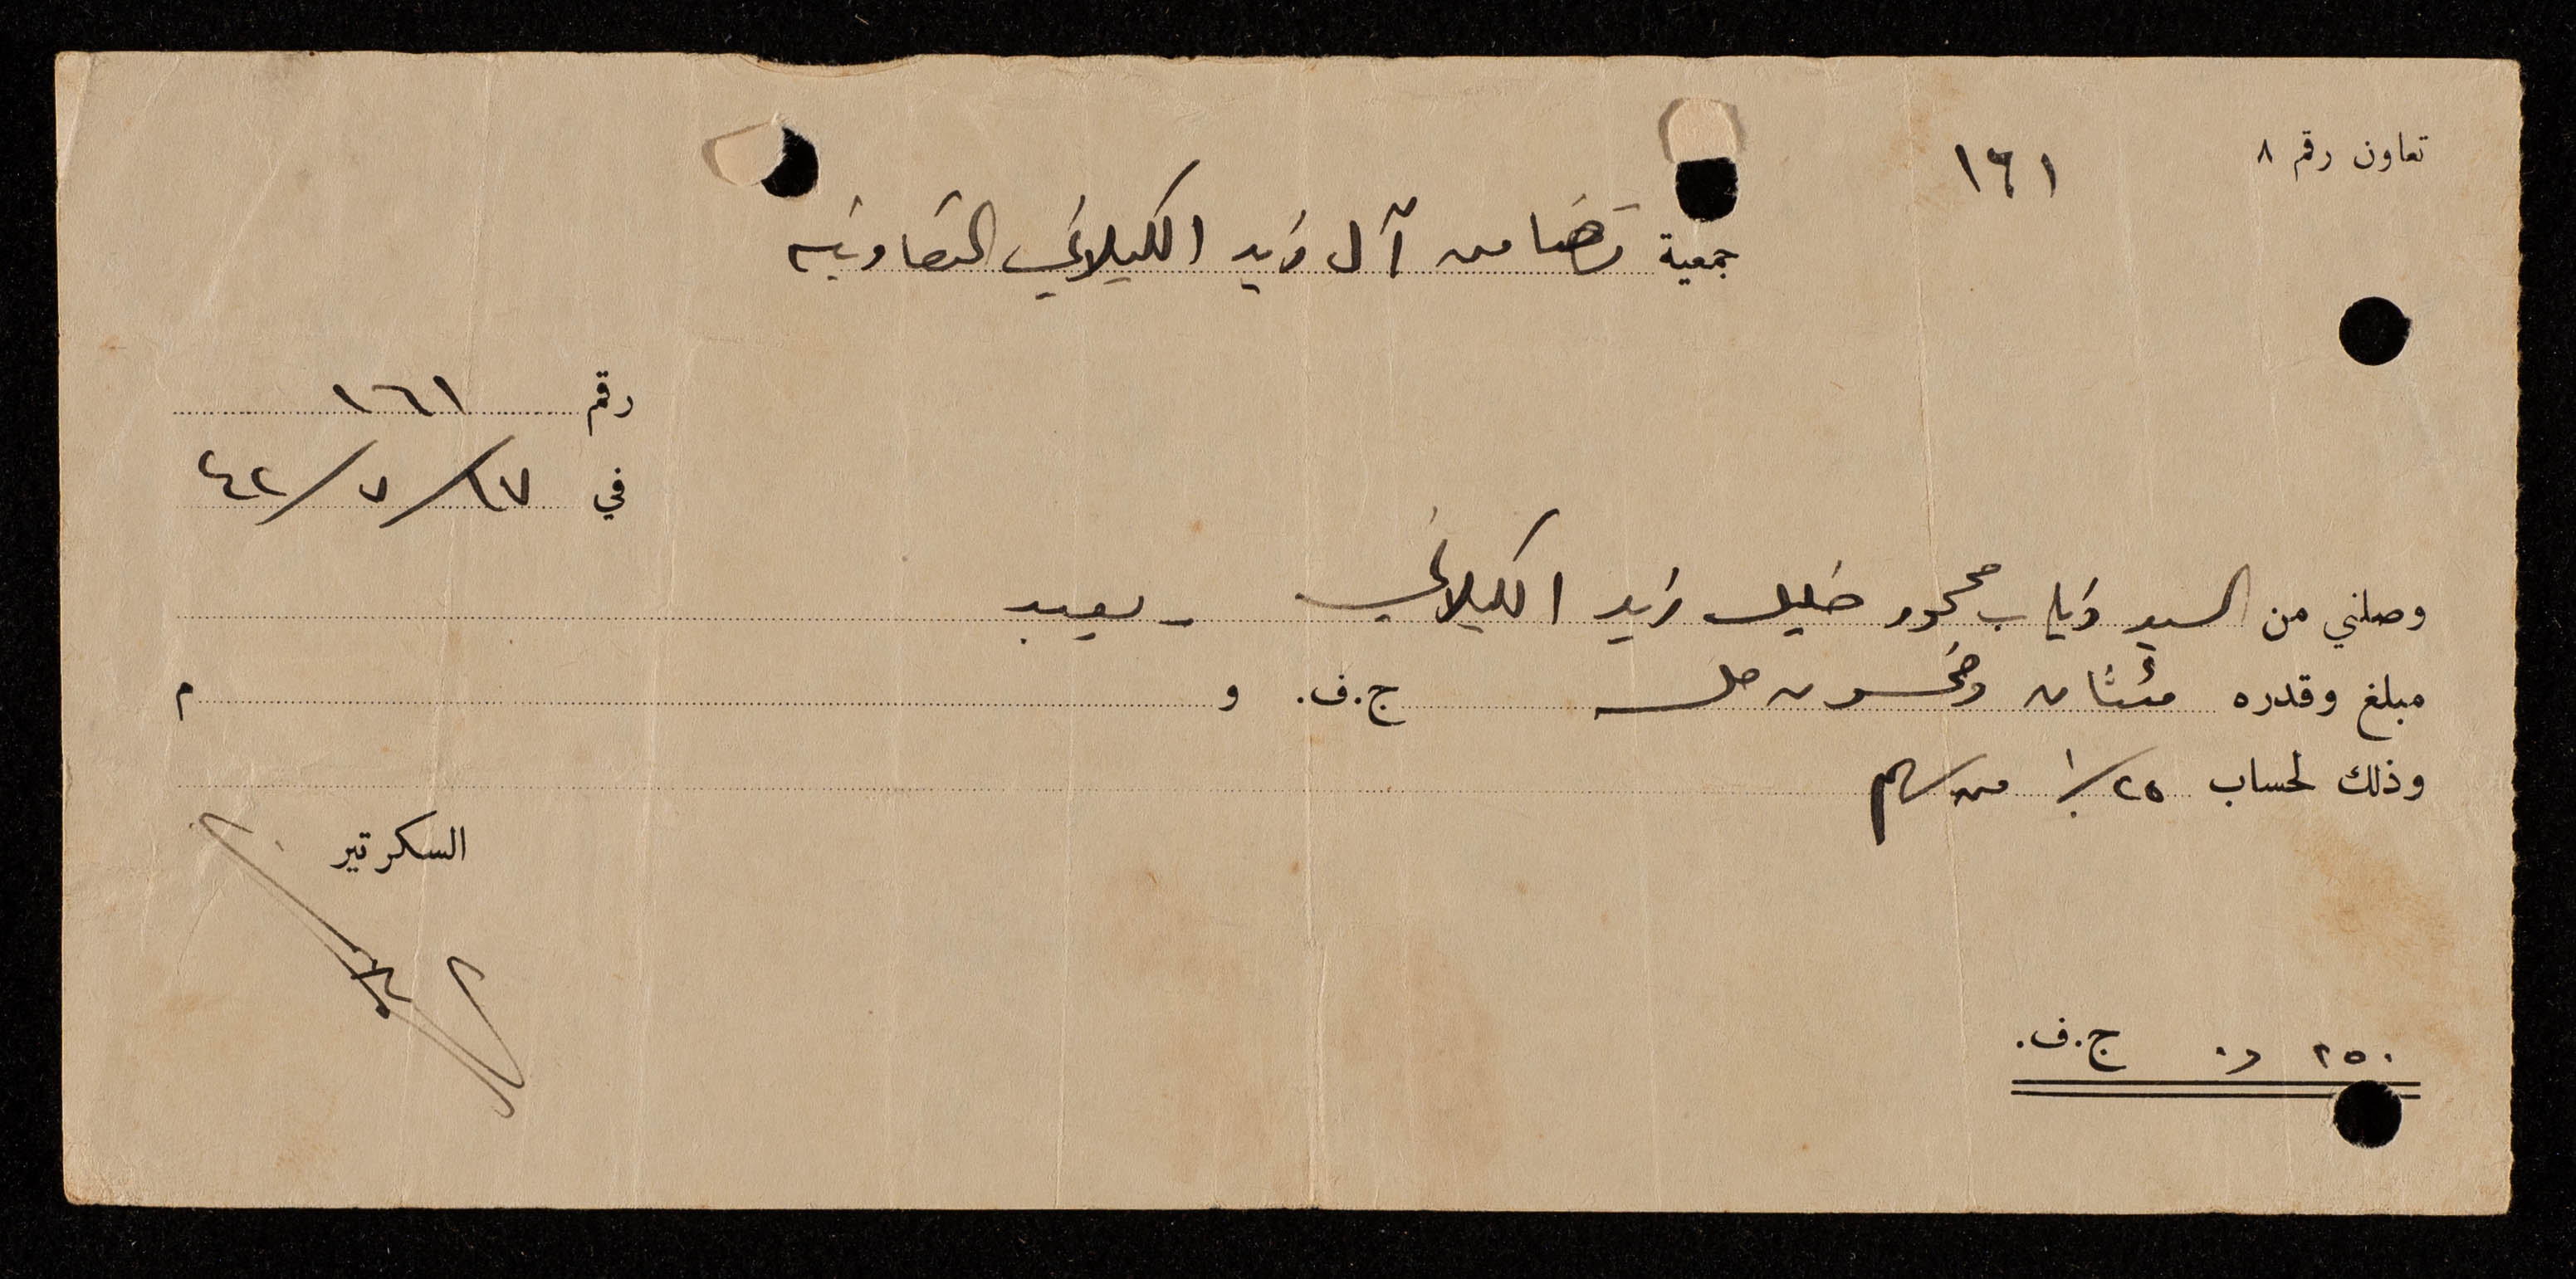 تعاون رقم ٨
١٦١
جمعية تضامن آل زيد الكيلاني التعاونيه
رقم ١٦١
في ١٧/٧/٤٢
وصلني من السيد ذياب محمود خليل زيد الكيلاني - يعبد
مبلغ وقدره مئتان وخمسون مل ج.ف. و م
وذلك لحساب ٢٥٪ من سهم
السكرتير
٢٥٠ و٠ ج.ف.